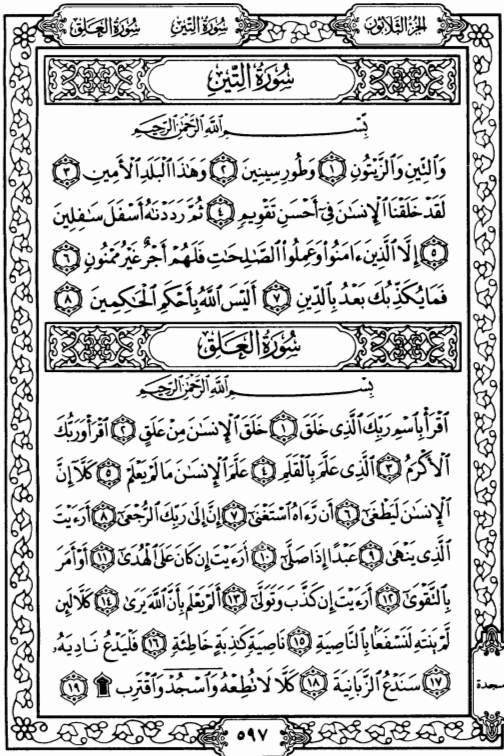 الجزء الثلاثون سورة التين سورة العلق
سُورَةُ التِّينِ
بِسْمِ اللَّهِ الرَّحْمَٰنِ الرَّحِيمِ
وَالتِّينِ وَالزَّيْتُونِ ١ وَطُورِ سِينِينَ ٢ وَهَٰذَا الْبَلَدِ الْأَمِينِ ٣
لَقَدْ خَلَقْنَا الْإِنسَٰنَ فِىٓ أَحْسَنِ تَقْوِيمٍ ٤ ثُمَّ رَدَدْنَٰهُ أَسْفَلَ سَٰفِلِينَ
٥ إِلَّا الَّذِينَ ءَامَنُوا وَعَمِلُوا الصَّٰلِحَٰتِ فَلَهُمْ أَجْرٌ غَيْرُ مَمْنُونٍ ٦
فَمَا يُكَذِّبُكَ بَعْدُ بِالدِّينِ ٧ أَلَيْسَ اللَّهُ بِأَحْكَمِ الْحَٰكِمِينَ ٨
سُورَةُ الْعَلَقِ
بِسْمِ اللَّهِ الرَّحْمَٰنِ الرَّحِيمِ
اقْرَأْ بِاسْمِ رَبِّكَ الَّذِى خَلَقَ ١ خَلَقَ الْإِنسَٰنَ مِنْ عَلَقٍ ٢ اقْرَأْ وَرَبُّكَ
الْأَكْرَمُ ٣ الَّذِى عَلَّمَ بِالْقَلَمِ ٤ عَلَّمَ الْإِنسَٰنَ مَا لَمْ يَعْلَمْ ٥ كَلَّآ إِنَّ
الْإِنسَٰنَ لَيَطْغَىٰٓ ٦ أَن رَّءَاهُ اسْتَغْنَىٰٓ ٧ إِنَّ إِلَىٰ رَبِّكَ الرُّجْعَىٰٓ ٨ أَرَءَيْتَ
الَّذِى يَنْهَىٰ ٩ عَبْدًا إِذَا صَلَّىٰٓ ١٠ أَرَءَيْتَ إِن كَانَ عَلَى الْهُدَىٰٓ ١١ أَوْ أَمَرَ
بِالتَّقْوَىٰٓ ١٢ أَرَءَيْتَ إِن كَذَّبَ وَتَوَلَّىٰٓ ١٣ أَلَمْ يَعْلَم بِأَنَّ اللَّهَ يَرَىٰ ١٤ كَلَّا لَئِن
لَّمْ يَنتَهِ لَنَسْفَعًۢا بِالنَّاصِيَةِ ١٥ نَاصِيَةٍ كَٰذِبَةٍ خَاطِئَةٍ ١٦ فَلْيَدْعُ نَادِيَهُۥ
١٧ سَنَدْعُ الزَّبَانِيَةَ ١٨ كَلَّا لَا تُطِعْهُ وَاسْجُدْ وَاقْتَرِب ۩ ١٩
سجدة
٥٩٧